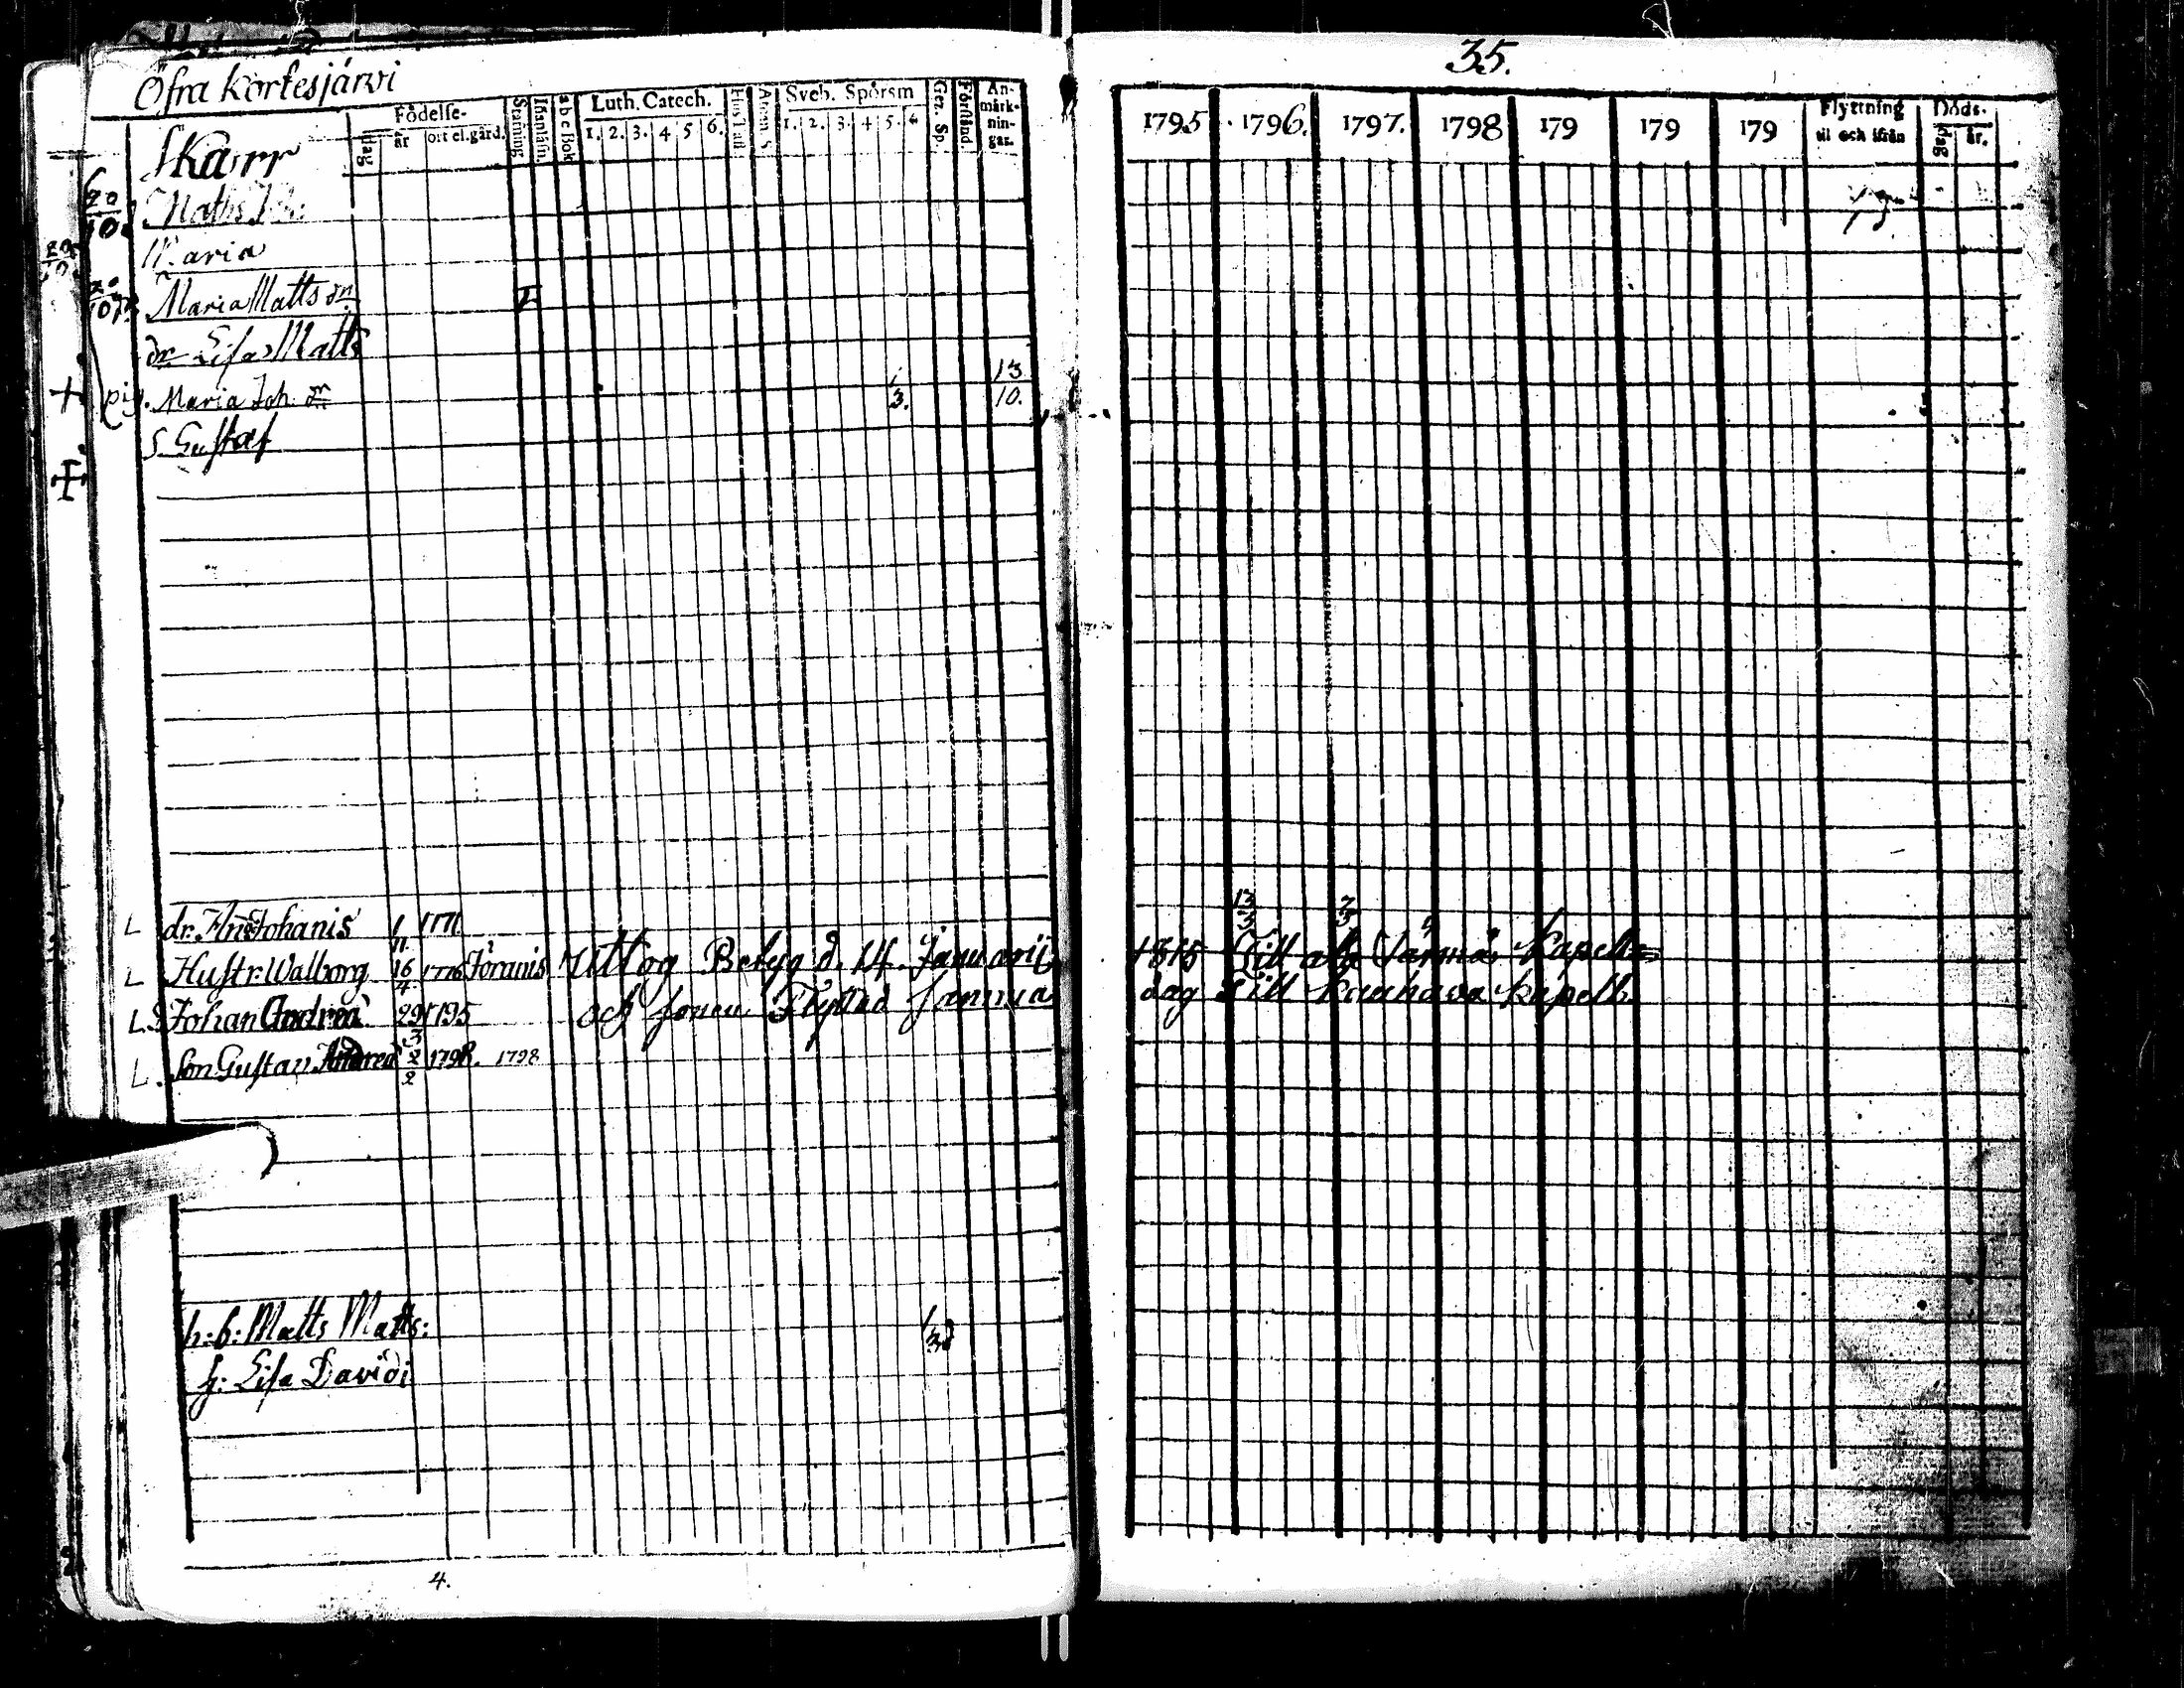 Öfra Kortesjärvi
35.
Födelse-
dag
år
ort el. gård.
Stafning
a b c Bok
Luth. Catech.
1. 2. 3. 4 5 6.
Sveb. Spörsm
1. 2. 3. 4 5. 6
Ger. Sp.
Förstånd
An-
märk-
nin-
gar.
1795 1796. 1797. 1798 179 179 179
Flyttning
til och ifrån
Döds-
dag
år.
Skarr
20
10
Matts Joh:
Maria
Maria Matts dr
dr Lisa Matts
13
pig. Maria Joh. dr 3. 10.
S Gustaf
13 2
L dr. And Johanis 1 1771 3 3
11
L Hustr. Walborg 16 1776 Joranis Uttog Betyg d. 14. Januarii 1815 Till Kapell
4
L. S Johan Andreæ 29 1795 och Flyttad samma dag till Kauhava Kapell.
3
L. Son Gustav Andreæ 2 1798. 1798
2
h: b: Matts Matts:
h: Lisa Davidi
4.